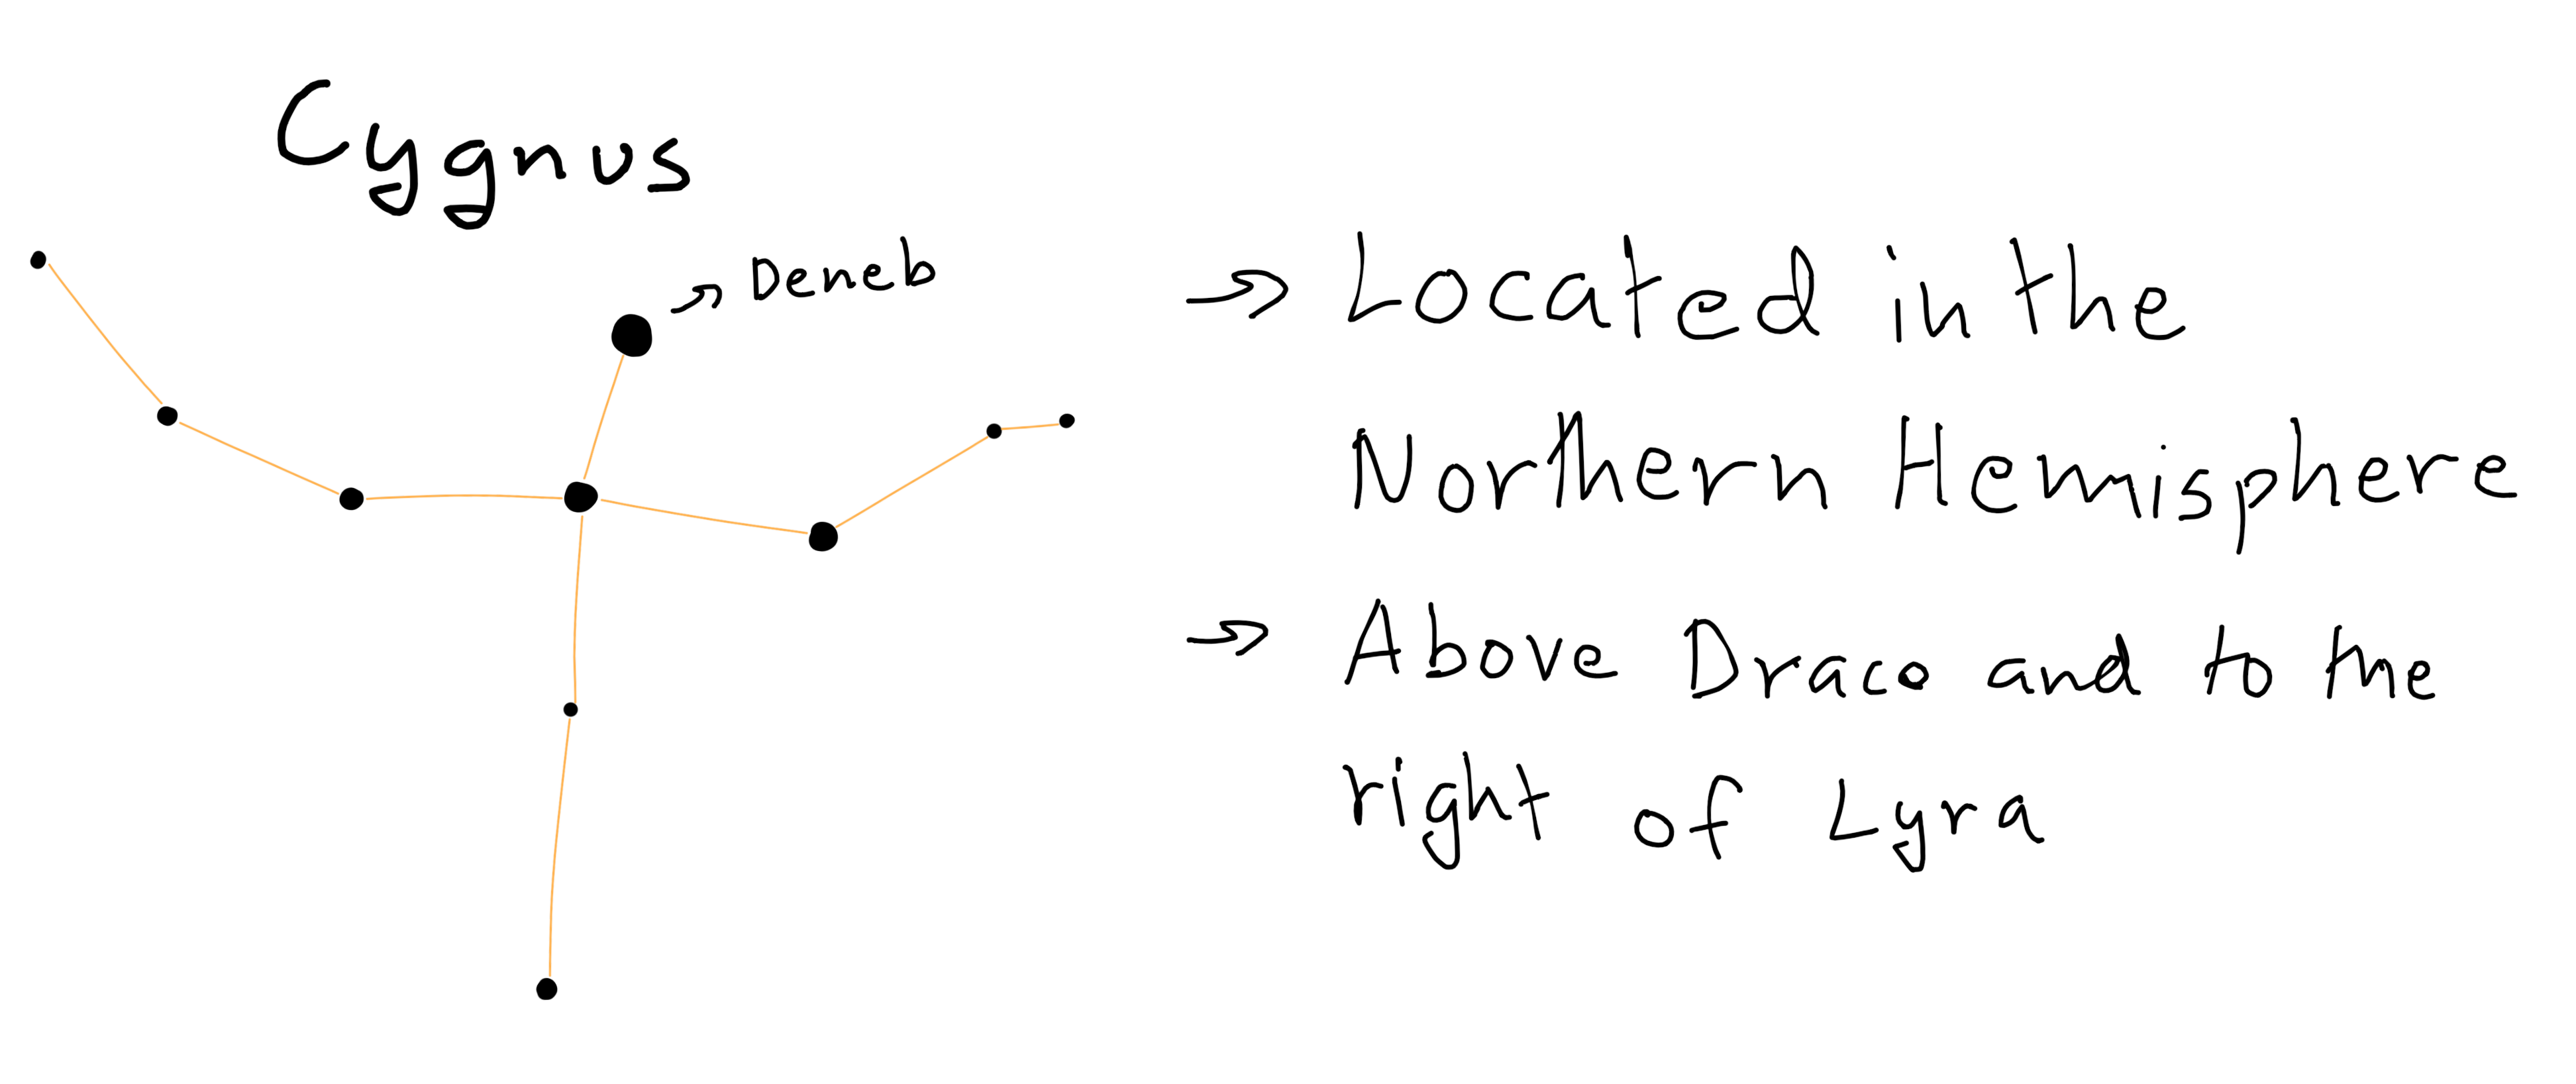 Cygnus
→ Deneb
→ Located in the
Northern Hemisphere
→ Above Draco and to the
right of Lyra